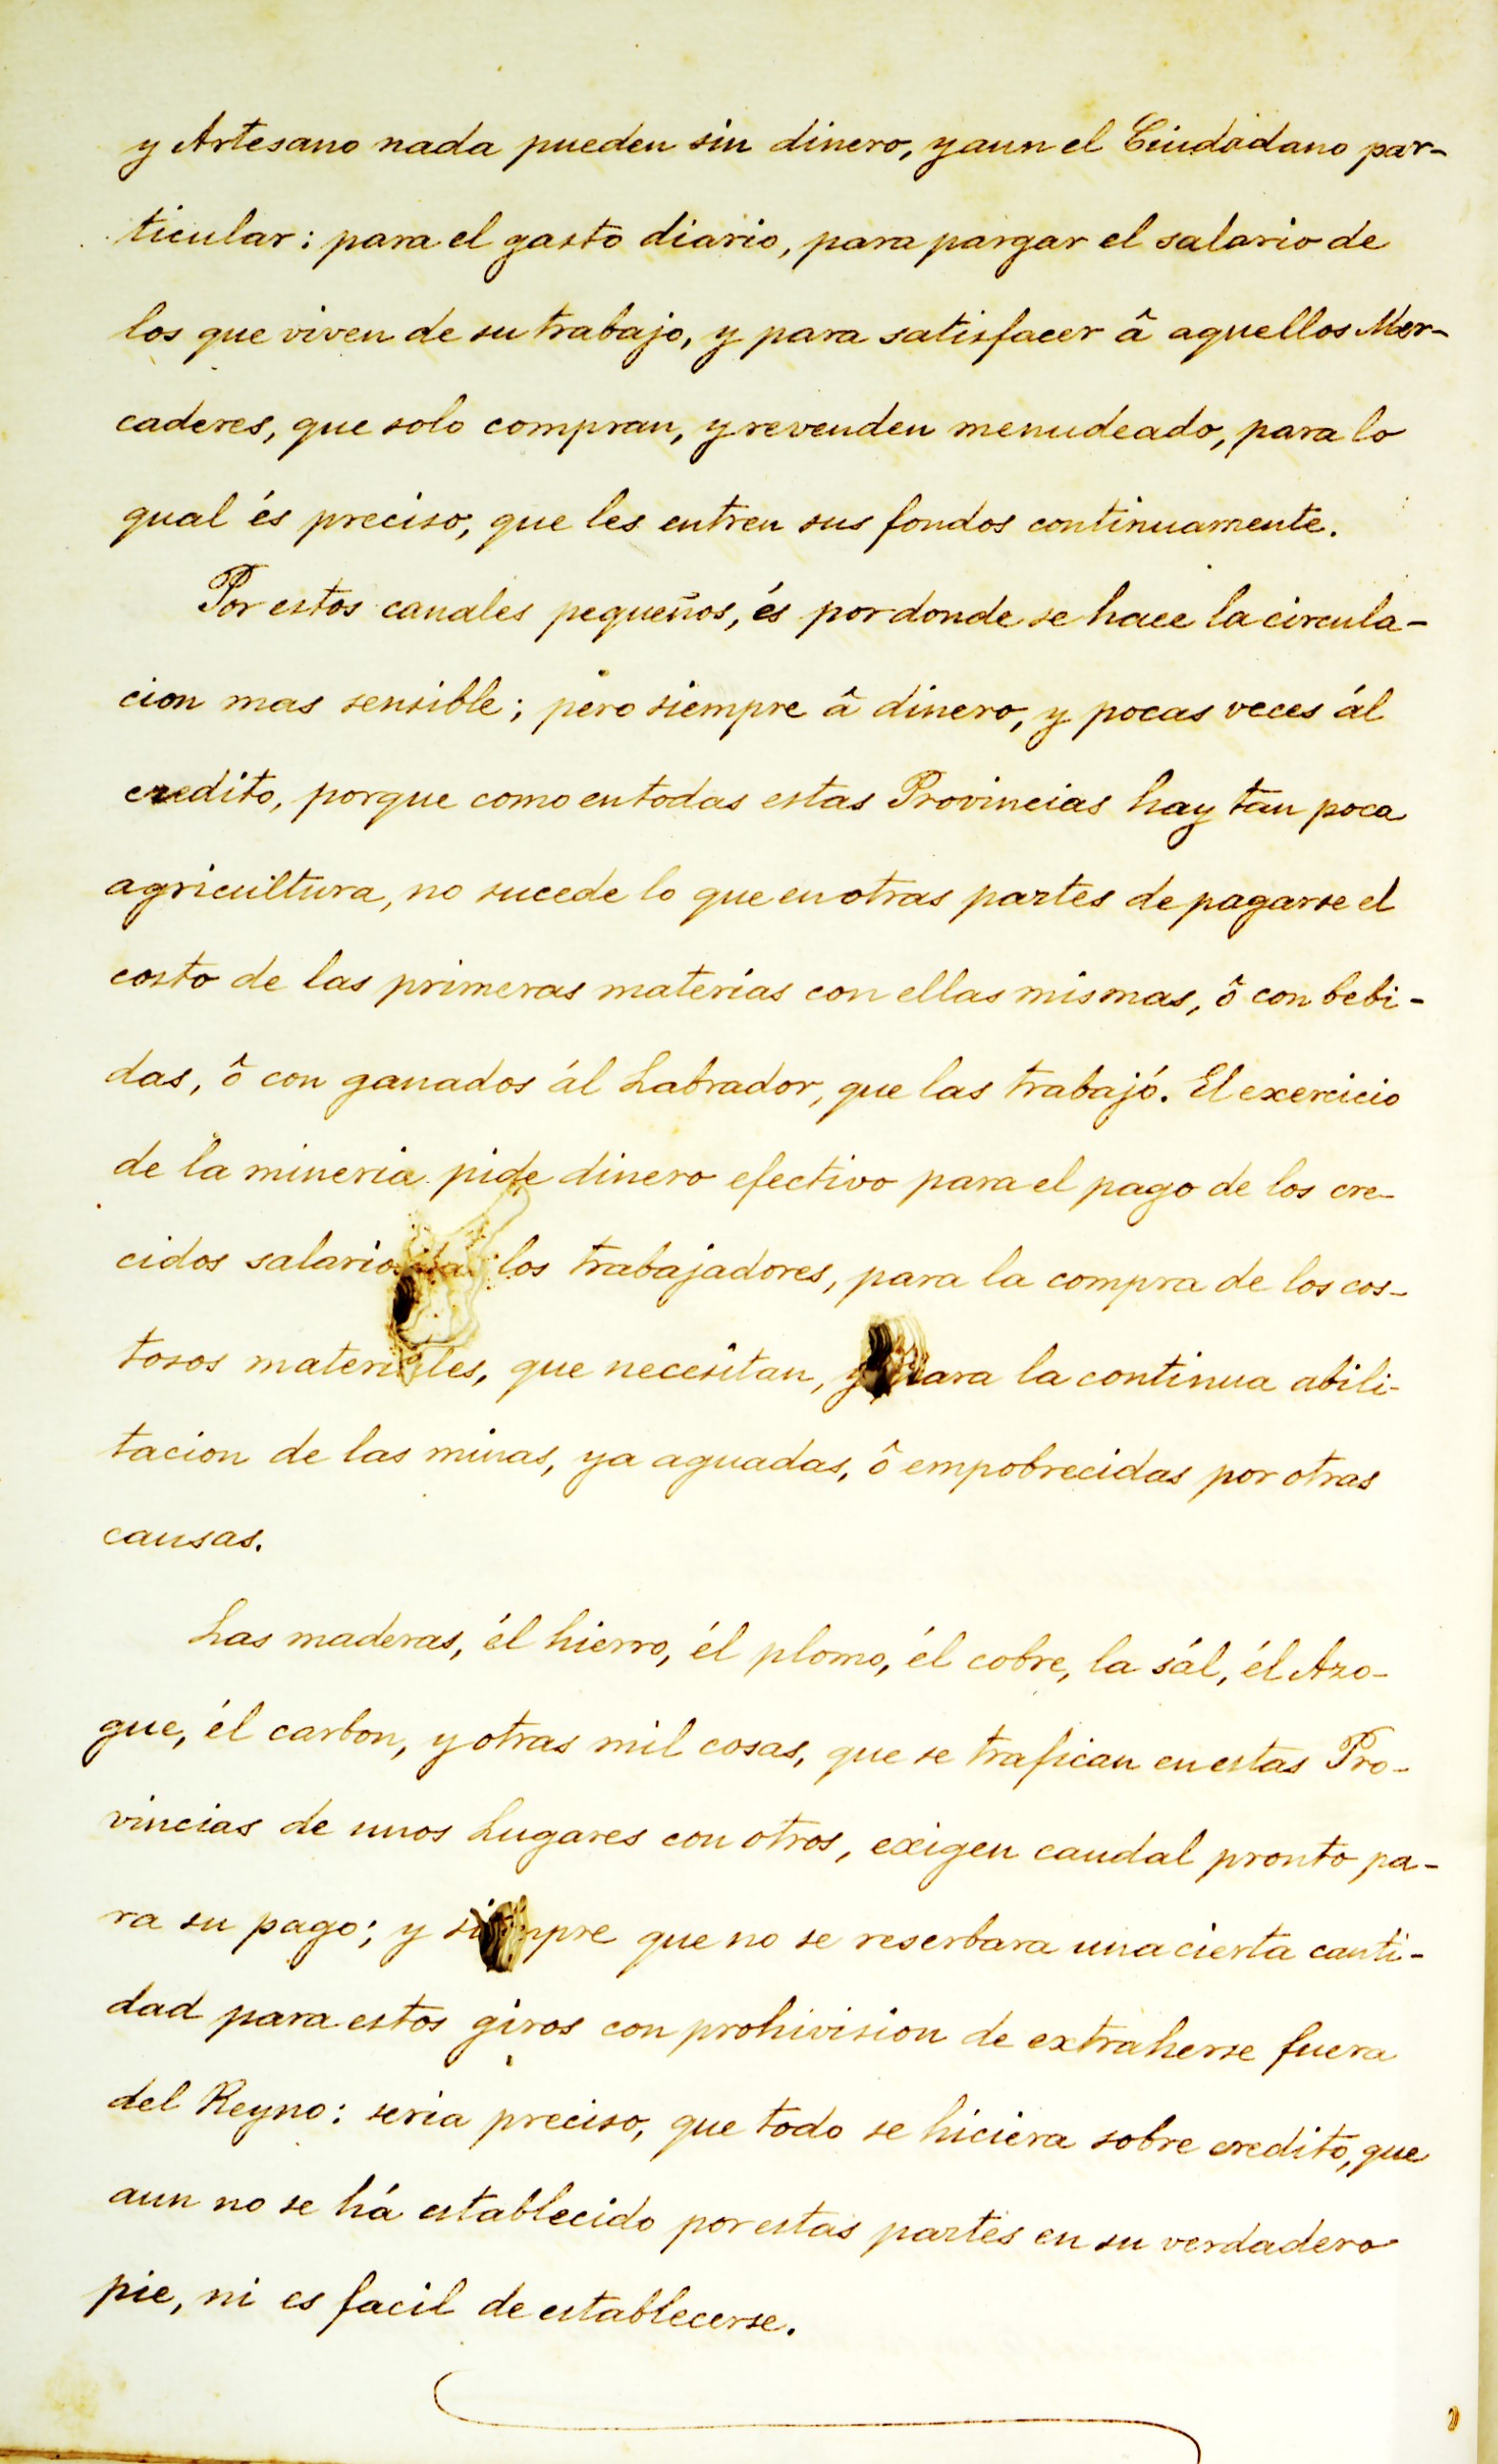 y Artesano nada pueden sin dinero, y aun el Ciudadano par-
ticular: para el gasto diario, para pargar el salario de
los que viven de su trabajo, y para satisfacer â aquellos Mer-
caderes, que solo compran, y revenden menudeado, para lo
qual és preciso, que les entren sus fondos continuamente.
Por estos canales pequeños, és por donde se hace la circula-
cion mas sensible; pero siempre â dinero, y pocas veces ál
credito, porque como en todas estas Provincias hay tan poca
agricultura, no sucede lo que en otras partes de pagarse el
costo de las primeras materias con ellas mismas, ô con bebi-
das, ô con ganados ál Labrador, que las trabajó. El exercicio
de la mineria pide dinero efectivo para el pago de los cre-
cidos salarios los trabajadores, para la compra de los cos-
tosos materiales, que necesitan, y para la continua abili-
tacion de las minas, ya aguadas, ô empobrecidas por otras
causas.
Las maderas, él hierro, él plomo, él cobre, la sál, él Azo-
gue, él carbon, y otras mil cosas, que se trafican en estas Pro-
vincias de unos Lugares con otros, exigen caudal pronto pa-
ra su pago; y siempre que no se reserbara una cierta canti-
dad para estos giros con prohivision de extraherse fuera
del Reyno: seria preciso, que todo se hiciera sobre credito, que
aun no se há establecido por estas partes en su verdadero
pie, ni es facil de establecerse.